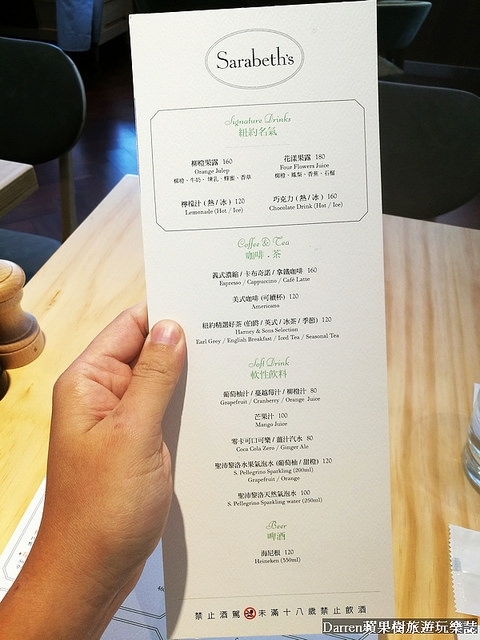 Sarabeth's
Signature Drinks
紐約名氣
柳橙果露 160
Orange Julep
柳橙、牛奶、煉乳、蜂蜜、香草
花漾果露 180
Four Flowers Juice
柳橙、鳳梨、香蕉、石榴
檸檬汁 ( 熱 / 冰 ) 120
Lemonade (Hot / Ice)
巧克力 ( 熱 / 冰 ) 160
Chocolate Drink (Hot / Ice)
Coffee & Tea
咖啡 . 茶
義式濃縮 / 卡布奇諾 / 拿鐵咖啡 160
Espresso / Cappuccino / Café Latte
美式咖啡 (可續杯) 120
Americano
紐約精選好茶 (伯爵 / 英式 / 冰茶 / 季節) 120
Harney & Sons Selection
Earl Grey / English Breakfast / Iced Tea / Seasonal Tea
Soft Drink
軟性飲料
葡萄柚汁 / 蔓越莓汁 / 柳橙汁 80
Grapefruit / Cranberry / Orange Juice
芒果汁 100
Mango Juice
零卡可口可樂 / 薑汁汽水 80
Coca Cola Zero / Ginger Ale
聖沛黎洛水果氣泡水 (葡萄柚 / 甜橙) 120
S. Pellegrino Sparkling (200ml)
Grapefruit / Orange
聖沛黎洛天然氣泡水 100
S. Pellegrino Sparkling water (250ml)
Beer
啤酒
海尼根 120
Heineken (330ml)
禁止酒駕 未滿十八歲禁止飲酒
Darren蘋果樹旅遊玩樂誌